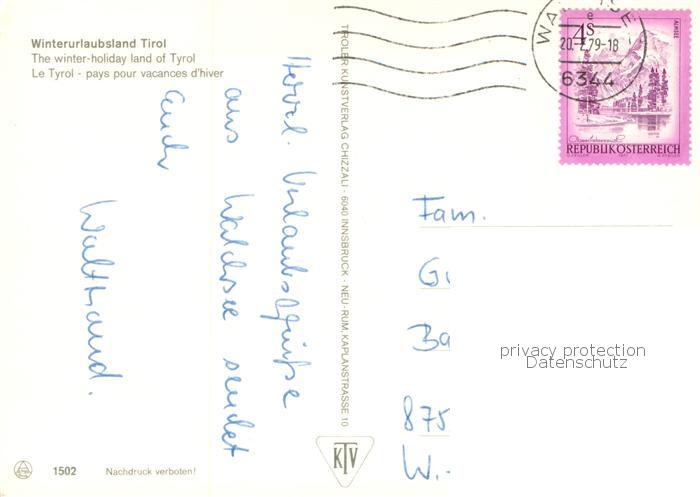 Winterurlaubsland Tirol
The winter-holiday land of Tyrol
Le Tyrol - pays pour vacances d'hiver
Herzl. Urlaubsgrüße
aus Walchsee sendet
auch
Waltraud.
TIROLER KUNSTVERLAG CHIZZALI · 6040 INNSBRUCK · NEU-RUM, KAPLANSTRASSE 10
KTV
1502 Nachdruck verboten!
4 S
ALMSEE
REPUBLIK ÖSTERREICH
6344
Fam.
Gi
Ba
875
W.-
privacy protection
Datenschutz